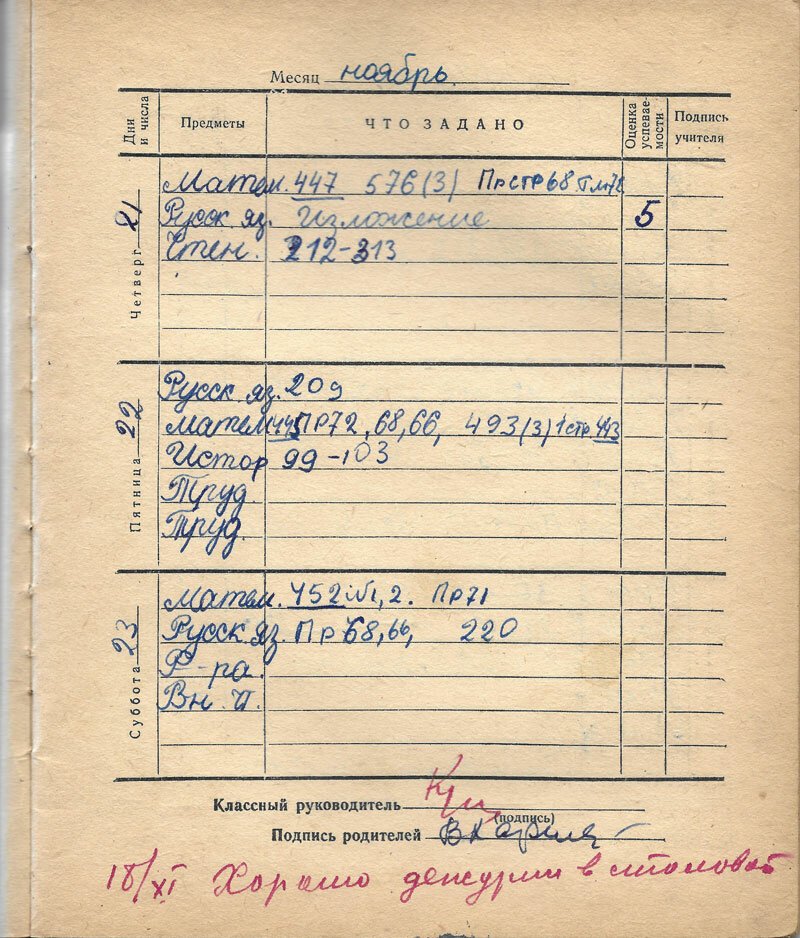 Месяц ноябрь
Дни и числа Предметы ЧТО ЗАДАНО Оценка успеваемости Подпись учителя
Четверг 21
Матем. 447 576(3) Пр стр 68
Русск яз. Изложение 5
Чтен. 212-313
Пятница 22
Русск яз. 209
матем 445 Пр72, 68, 66, 493(3) 1 стр 443
Истор 99-103
Труд.
Труд.
Суббота 23
матем. 452 №1, 2. Пр71
Русск яз. Пр 68, 66, 220
Ф-ра.
Вн. ч.
Классный руководитель
(подпись)
Подпись родителей
18/XI Хорошо дежурил в столовой